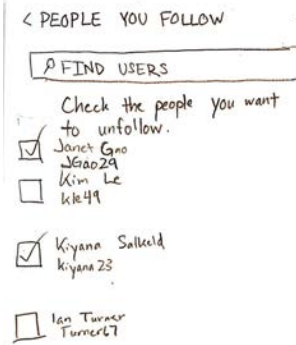 < PEOPLE YOU FOLLOW
FIND USERS
Check the people you want
to unfollow.
Janet Gao
JGao29
Kim Le
kle49
Kiyana Salkeld
kiyana23
Ian Turner
Turner67